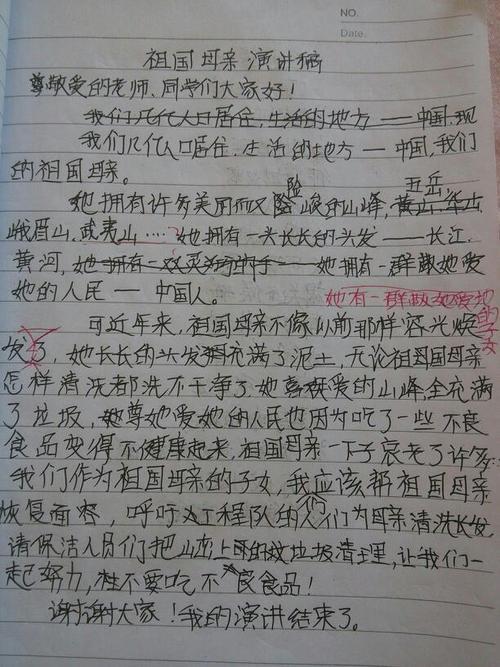 NO.
Date.
祖国母亲演讲稿
尊敬爱的老师、同学们大家好！
我们几代人口居住，生活的地方——中国，现
我们几代人口居住、生活的地方——中国，我们
的祖国母亲。
险 五岳
她拥有许多美丽而又峻的山峰，黄山、华山
峨眉山、武夷山……她拥有一头长长的头发——长江、
黄河，她拥有一双灵巧的手——她拥有一群敬她爱
她的人民——中国人。
她有一群敬她爱她的子女
可近年来，祖国母亲不像以前那样容光焕
发了，她长长的头发充满了泥土，无论祖国母亲
怎样清洗都洗不干净了。她喜爱的山峰，全充满
了垃圾，尊她爱她的人民也因为吃了一些不良
食品变得不健康起来，祖国母亲一下子衰老了许多：
我们作为祖国母亲的子女，我应该帮祖国母亲
恢复面容，呼吁工程队的人们为母亲清洗长发，
们
请保洁人员们把山上的垃圾清理，让我们一
起努力，不要吃不良食品！
谢谢大家！我的演讲结束了。